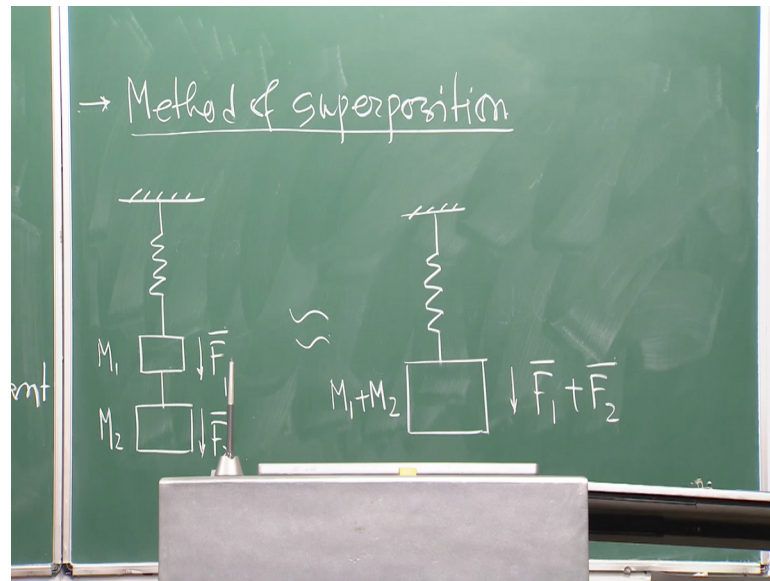 → Method of superposition
M₁ ↓ F̅₁
M₂ ↓ F̅
≈
M₁+M₂ ↓ F̅₁ + F̅₂